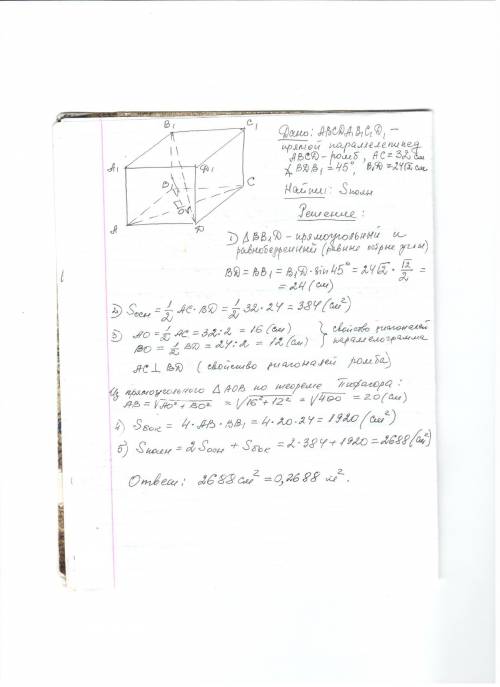 B₁
C₁
A₁
D₁
B
C
O
A
D
Дано: ABCDA₁B₁C₁D₁ –
прямой параллелепипед
ABCD – ромб, AC = 32 см
∠BDB₁ = 45°, B₁D = 24√2 см
Найти: Sполн
Решение:
1) △BB₁D – прямоугольный и
равнобедренный (равные острые углы)
BD = BB₁ = B₁D · sin 45° = 24√2 · √2/2 =
= 24 (см)
2) Sосн = 1/2 AC · BD = 1/2 32 · 24 = 384 (см²)
3) AO = 1/2 AC = 32 : 2 = 16 (см) } свойство диагоналей
BO = 1/2 BD = 24 : 2 = 12 (см) параллелограмма
AC ⊥ BD (свойство диагоналей ромба)
Из прямоугольного △AOB по теореме Пифагора:
AB = √AO² + BO² = √16² + 12² = √400 = 20 (см)
4) Sбок = 4 · AB · BB₁ = 4 · 20 · 24 = 1920 (см²)
5) Sполн = 2Sосн + Sбок = 2 · 384 + 1920 = 2688 (см²)
Ответ: 2688 см² = 0,2688 м².